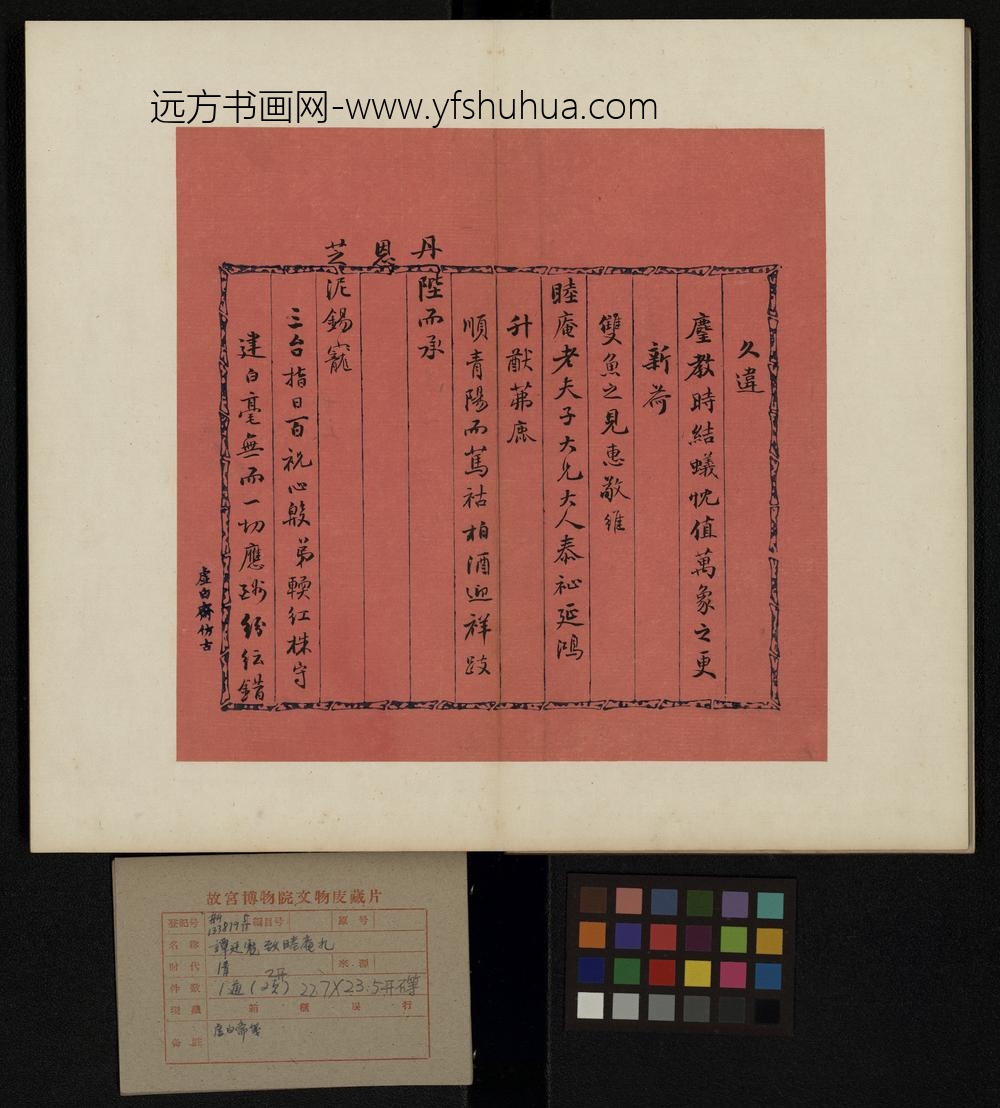 远方书画网-www.yfshuhua.com
久違
麈教時結蟻忱值萬象之更
新荷
雙魚之見惠敬維
睦庵老夫子大兄大人泰祉延鴻
升猷茀鹿
順青陽而篤祜柏酒迎祥跂
丹陛而承
恩
芝泥錫寵
三台指日百祝心殷弟輭紅株守
建白毫無而一切應酬紛紜錯
虛白齋仿古
故宮博物院文物庋藏片
登記号 新133819 編目号 原号
名称 譚廷彪致睦庵札
时代 清 来源
件数 1通(2頁) 2开 22.7X23.5
現藏 箱 櫃 屉 行
备註 虛白齋